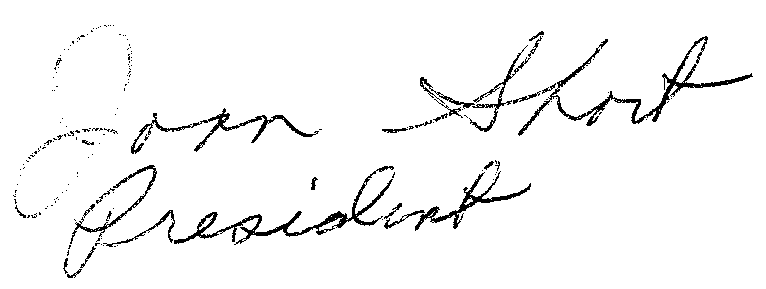 Joan Short
President